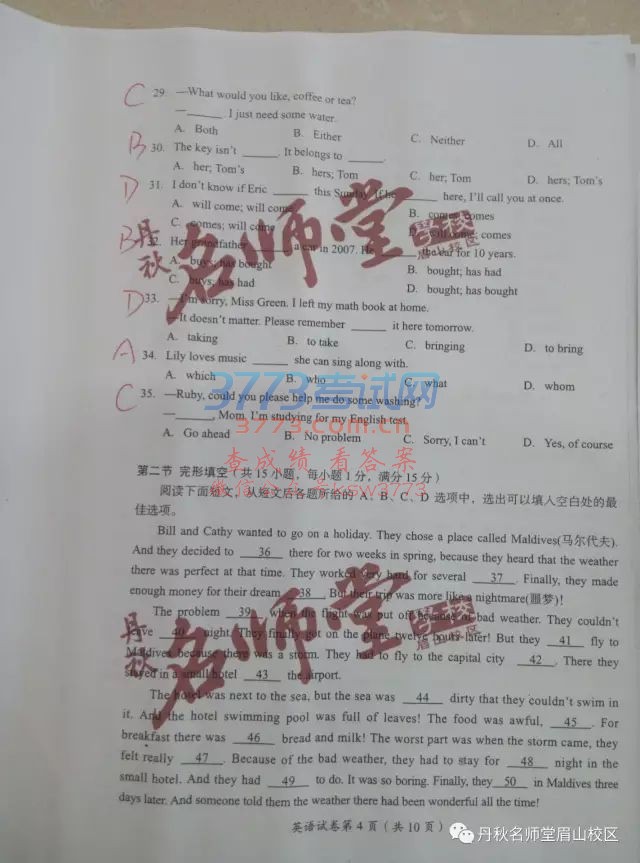 C 29. —What would you like, coffee or tea?
—______. I just need some water.
A. Both B. Either C. Neither D. All
B 30. The key isn't ______. It belongs to ______.
A. her; Tom's B. hers; Tom C. her; Tom D. hers; Tom's
D 31. I don't know if Eric ______ this Sunday. If he ______ here, I'll call you at once.
A. will come; will come B. comes; comes
C. comes; will come D. will come; comes
B 32. Her grandfather ______ a car in 2007. He ______ the car for 10 years.
A. buys; has bought B. bought; has had
C. buys; has had D. bought; has bought
D 33. —I'm sorry, Miss Green. I left my math book at home.
—It doesn't matter. Please remember ______ it here tomorrow.
A. taking B. to take C. bringing D. to bring
A 34. Lily loves music ______ she can sing along with.
A. which B. who C. what D. whom
C 35. —Ruby, could you please help me do some washing?
—______, Mom. I'm studying for my English test.
A. Go ahead B. No problem C. Sorry, I can't D. Yes, of course
第二节 完形填空(共15小题,每小题1分,满分15分)
阅读下面短文,从短文后各题所给的 A、B、C、D 选项中,选出可以填入空白处的最
佳选项。
Bill and Cathy wanted to go on a holiday. They chose a place called Maldives(马尔代夫).
And they decided to 36 there for two weeks in spring, because they heard that the weather
there was perfect at that time. They worked very hard for several 37 . Finally, they made
enough money for their dream 38 . But their trip was more like a nightmare(噩梦)!
The problem 39 when the flight was put off because of bad weather. They couldn't
leave 40 night. They finally got on the plane twelve hours later! But they 41 fly to
Maldives because there was a storm. They had to fly to the capital city 42 . There they
stayed in a small hotel 43 the airport.
The hotel was next to the sea, but the sea was 44 dirty that they couldn't swim in
it. And the hotel swimming pool was full of leaves! The food was awful, 45 . For
breakfast there was 46 bread and milk! The worst part was when the storm came, they
felt really 47 . Because of the bad weather, they had to stay for 48 night in the
small hotel. And they had 49 to do. It was so boring. Finally, they 50 in Maldives three
days later. And someone told them the weather there had been wonderful all the time!
英语试卷第4页(共10页)
丹秋名师堂
眉山校区
3773考试网
3773.com.cn
查成绩 看答案
丹秋名师堂
眉山校区
丹秋名师堂眉山校区